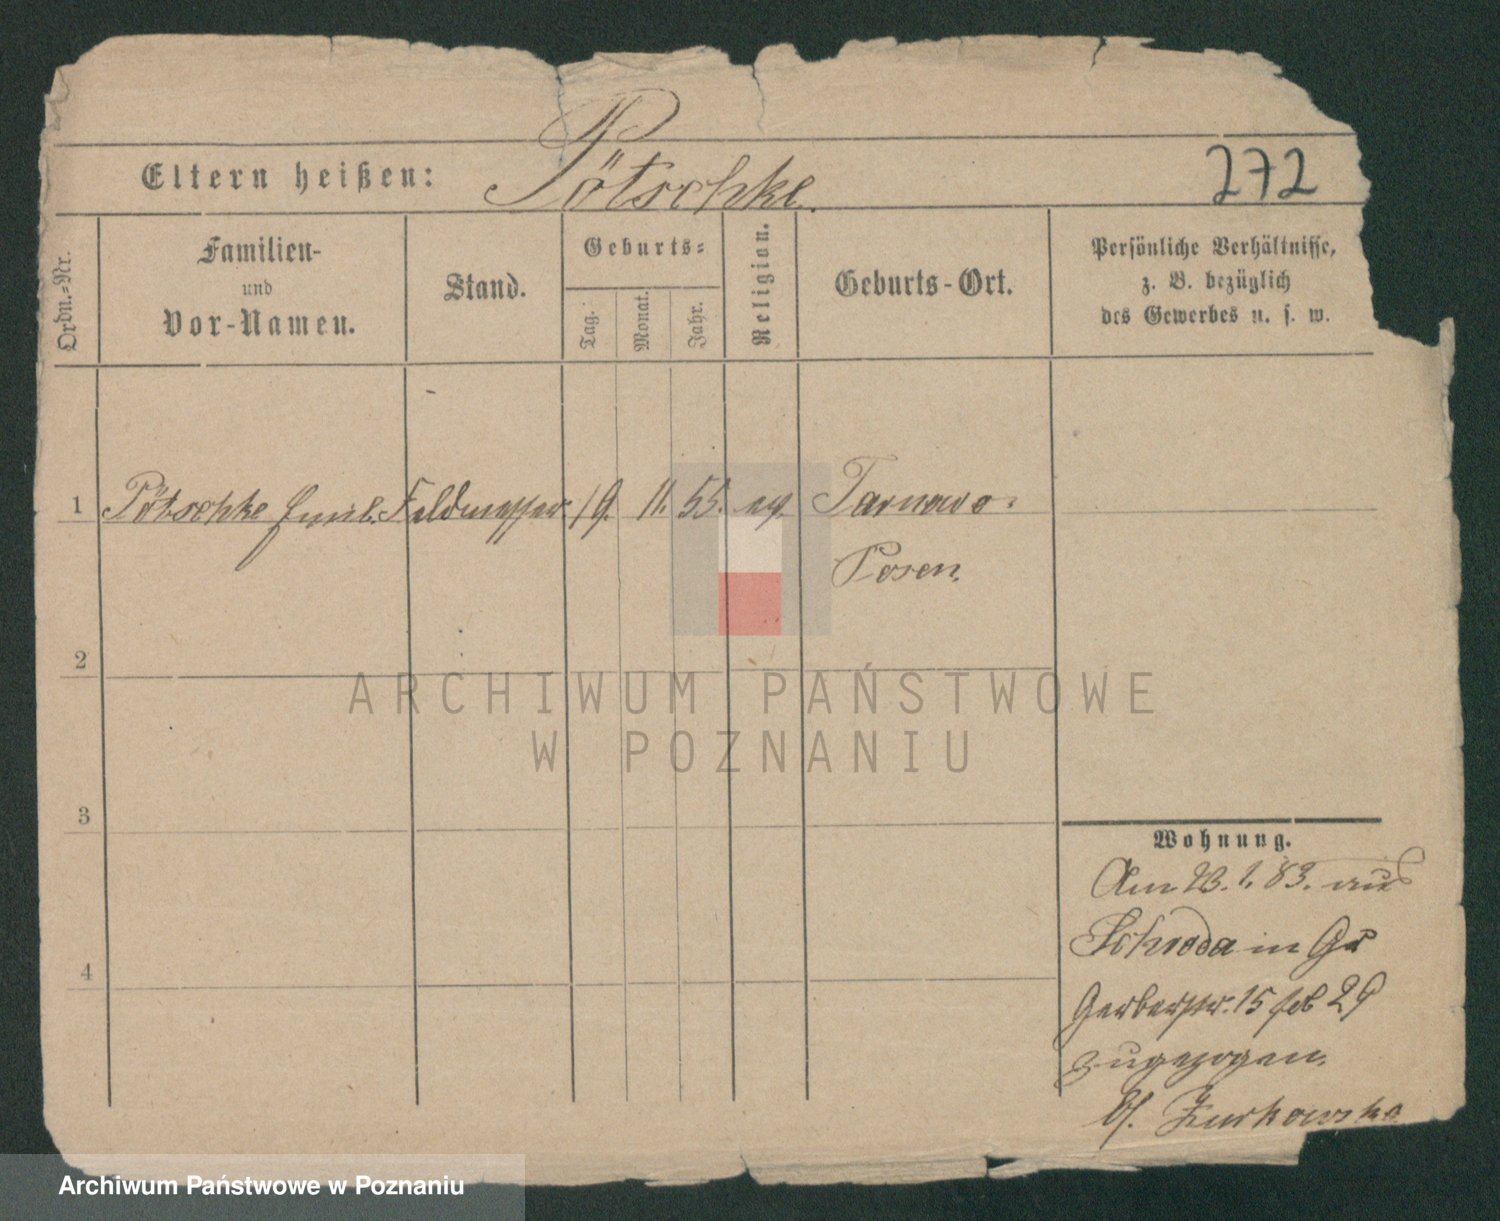 Eltern heißen: Pötschke. 272
Ordn.-Nr.
Familien-
und
Vor-Namen.
Stand.
Geburts-
Tag.
Monat.
Jahr.
Religion.
Geburts-Ort.
Persönliche Verhältnisse,
z. B. bezüglich
des Gewerbes u. s. w.
1 Pötschke Emil. Feldmesser 19. 11. 55. ev. Tarnowo.
Posen.
2
ARCHIWUM PAŃSTWOWE
W POZNANIU
3
Wohnung.
Am 23. 1. 83. aus
Schroda in Gr
4
Gerberstr. 15 29
zugezogen.
b/. Zurkowska
Archiwum Państwowe w Poznaniu